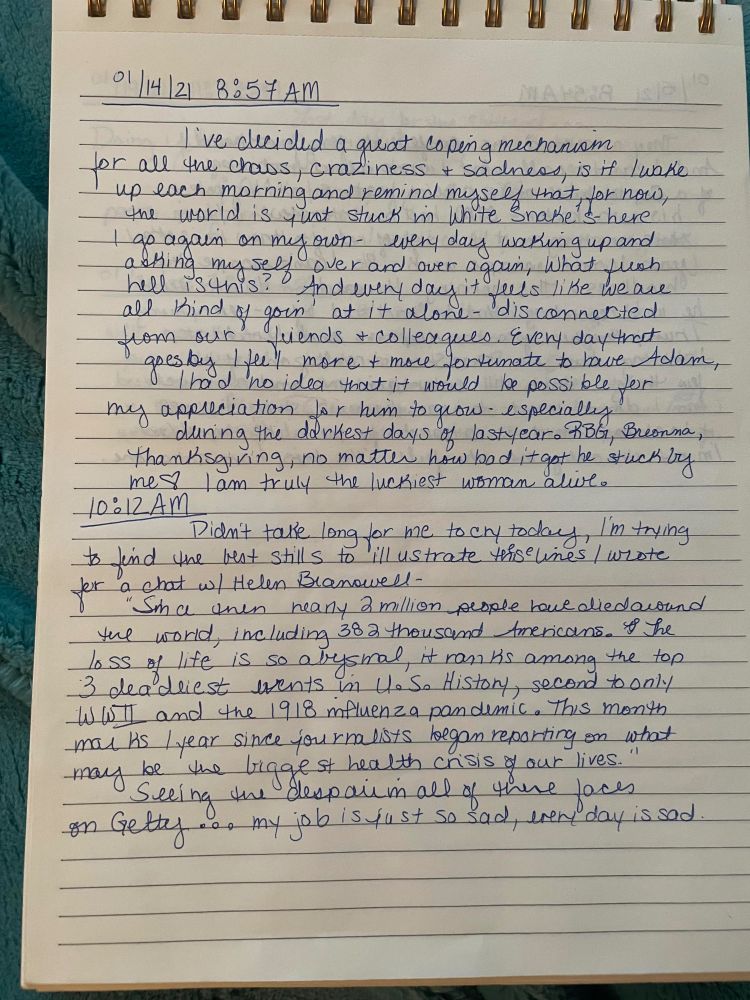 01/14/21 8:57AM
I've decided a great coping mechanism
for all the chaos, craziness + sadness, is if I wake
up each morning and remind myself that, for now,
the world is just stuck in White Snake's - here
I go again on my own - every day waking up and
asking myself over and over again, what fresh
hell is this? And every day it feels like we are
all kind of goin' at it alone - disconnected
from our friends + colleagues. Every day that
goes by I feel more + more fortunate to have Adam,
I had no idea that it would be possible for
my appreciation for him to grow - especially
during the darkest days of last year. RBG, Breonna,
Thanksgiving, no matter how bad it got he stuck by
me♡ I am truly the luckiest woman alive.
10:12AM
Didn't take long for me to cry today, I'm trying
to find the best stills to illustrate these lines I wrote
for a chat w/ Helen Branswell -
"Since then nearly 2 million people have died around
the world, including 382 thousand Americans. The
loss of life is so abysmal, it ranks among the top
3 deadliest events in U.S. History, second to only
WWII and the 1918 influenza pandemic. This month
marks 1 year since journalists began reporting on what
may be the biggest health crisis of our lives."
Seeing the despair in all of these faces
on Getty... my job is just so sad, every day is sad.